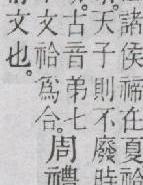 諸侯禘在夏祫
天子則不廢時
古音弟七
文祫爲合。
周禮
文也。